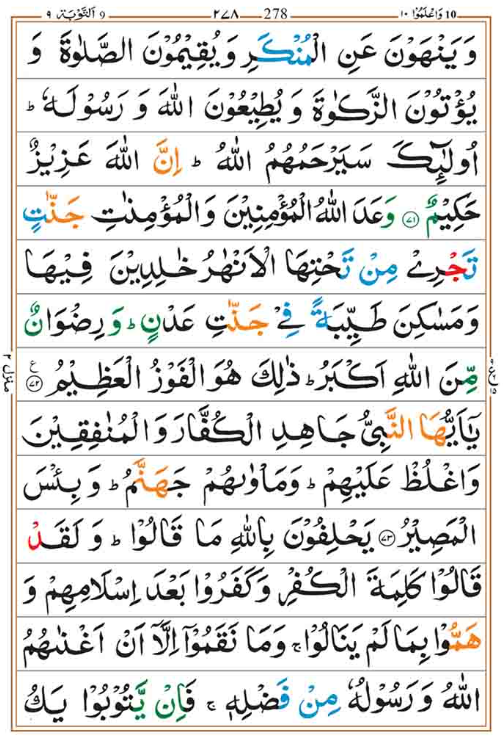 ١٠ وَاعْلَمُوْٓا 10 278 ٢٧٨ 9 اَلتَّوْبَة ٩
وَيَنْهَوْنَ عَنِ الْمُنْكَرِ وَيُقِيْمُوْنَ الصَّلٰوةَ وَ
يُؤْتُوْنَ الزَّكٰوةَ وَيُطِيْعُوْنَ اللّٰهَ وَرَسُوْلَهٗ ؕ
اُولٰٓئِكَ سَيَرْحَمُهُمُ اللّٰهُ ؕ اِنَّ اللّٰهَ عَزِيْزٌ
حَكِيْمٌ ﴿۷۱﴾ وَعَدَ اللّٰهُ الْمُؤْمِنِيْنَ وَالْمُؤْمِنٰتِ جَنّٰتٍ
تَجْرِيْ مِنْ تَحْتِهَا الْاَنْهٰرُ خٰلِدِيْنَ فِيْهَا
وَمَسٰكِنَ طَيِّبَةً فِيْ جَنّٰتِ عَدْنٍ ؕ وَرِضْوَانٌ
مِّنَ اللّٰهِ اَكْبَرُ ؕ ذٰلِكَ هُوَ الْفَوْزُ الْعَظِيْمُ ﴿۷۲﴾ ع
منزل ٢
يٰۤاَيُّهَا النَّبِيُّ جَاهِدِ الْكُفَّارَ وَالْمُنٰفِقِيْنَ
وَاغْلُظْ عَلَيْهِمْ ؕ وَمَاْوٰىهُمْ جَهَنَّمُ ؕ وَبِئْسَ
الْمَصِيْرُ ﴿۷۳﴾ يَحْلِفُوْنَ بِاللّٰهِ مَا قَالُوْا ؕ وَلَقَدْ
قَالُوْا كَلِمَةَ الْكُفْرِ وَكَفَرُوْا بَعْدَ اِسْلَامِهِمْ وَ
هَمُّوْا بِمَا لَمْ يَنَالُوْا ۚ وَمَا نَقَمُوْۤا اِلَّاۤ اَنْ اَغْنٰىهُمُ
اللّٰهُ وَرَسُوْلُهٗ مِنْ فَضْلِهٖ ۚ فَاِنْ يَّتُوْبُوْا يَكُ